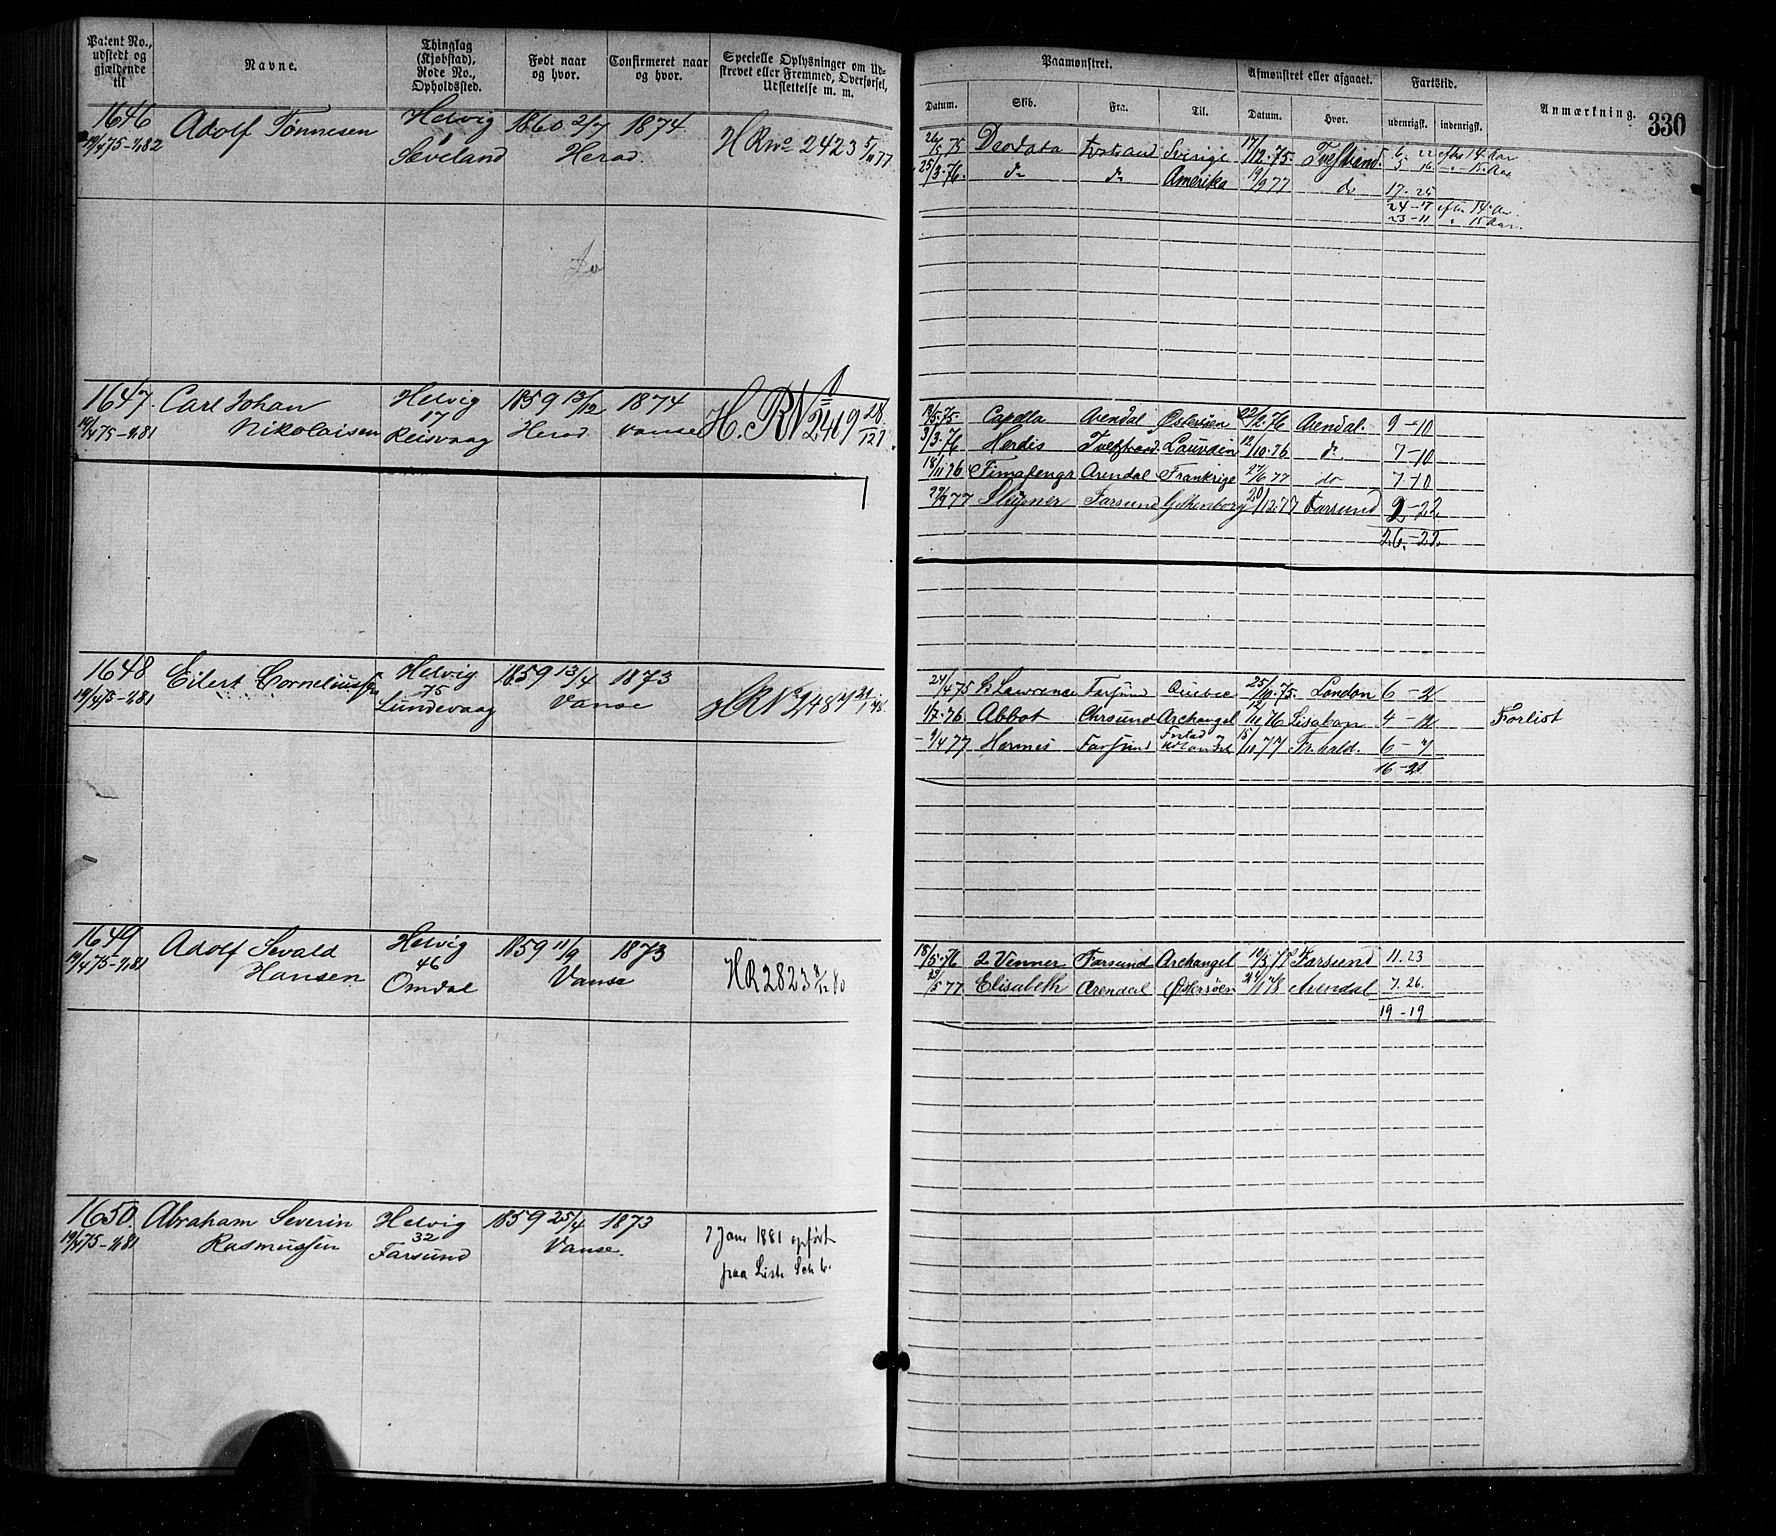 Patent No., udstedt og gjældende til
Navne.
Thinglag (Kjøbstad), Rode No., Opholdssted.
Født naar og hvor.
Confirmeret naar og hvor.
Specielle Oplysninger om Udskrevet eller Fremmed, Overførsel, Udslettelse m. m.
Paamønstret.
Datum. Skib. Fra. Til.
Afmønstret eller afgaaet.
Datum. Hvor.
Fartstid.
udenrigsk. indenrigsk.
Anmærkning.
330
1646 Adolf Tønnesen Helvig 1860 2/7 1874
19/4 75 - 1/1 82 Sæveland Herad HR No 2423 5/11 77
26/5 75 Deodata Sverige 17/12 75
25/3 76 do do Amerika 19/9 77 do 17. 25
24-17 efter 14 Aar
23-11 " 15 Aar.
1647 Carl Johan Helvig 1859 13/12 1874
19/4 75 - 1/1 81 Nikolaisen 17 Reisvaag Herad Vanse H. RN 2419
Capella Arendal Østersøen 22/12 76 Arendal. 9-10
3/3 76 Herdis 12/10 76 do 7-10
18/11 76 Arendal Frankrige 27/6 77 do 7-10
29/9 77 Farsund Gothenborg 20/12 77 Farsund 2-22
26.-22
1648 Eilert Corneliussen Helvig 1859 13/4 1873
19/4 75 - 1/1 81 75 Lundevaag Vanse
24/4 75 St Lawrence Farsund Quebec 25/10 75. London 6-2
1/7 76 Abbot Chrsund Archangel 12/11 76 Lisabon 4-12 Forlist
9/4 77 Hermes Farsund 15/10 77 Fr.hald. 6-7
16-21
1649 Adolf Sevald Helvig 1859 11/9 1873
19/4 75 - 1/1 81 Hansen 46 Omdal Vanse HR 2823 80
18/5 76 2 Venner Farsund Archangel Farsund 11. 23
29/5 77 Elisabeth Arendal Østersøen 24/1 78 Arendal 7. 26.
19-19
1650. Abraham Severin Helvig 1859 25/4 1873
19/4 75 - 1/1 81 Rasmussen 32 Farsund Vanse.
7 Jan 1881 opført
paa Liste